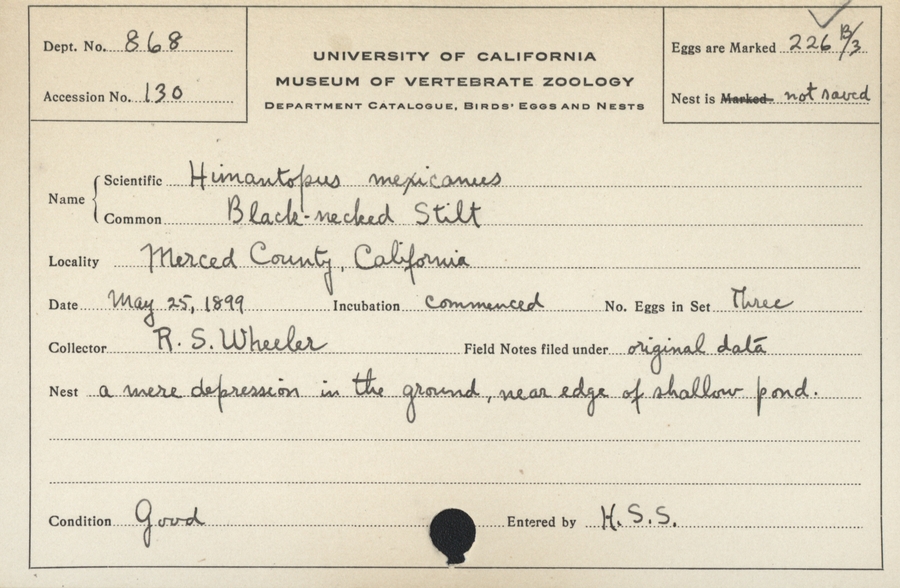 Dept. No. 868
Accession No. 130
UNIVERSITY OF CALIFORNIA
MUSEUM OF VERTEBRATE ZOOLOGY
DEPARTMENT CATALOGUE, BIRDS' EGGS AND NESTS
Eggs are Marked 226 B/3
Nest is Marked not saved
Name
Scientific Himantopus mexicanus
Common Black-necked Stilt
Locality Merced County, California
Date May 25, 1899 Incubation commenced No. Eggs in Set Three
Collector R. S. Wheeler Field Notes filed under original data
Nest a mere depression in the ground, near edge of shallow pond.
Condition Good Entered by H. S. S.